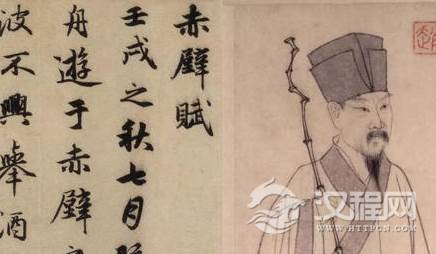 赤壁賦
壬戌之秋七月
舟遊于赤壁
波不興舉酒
汉程网
WWW.HTTPCN.COM